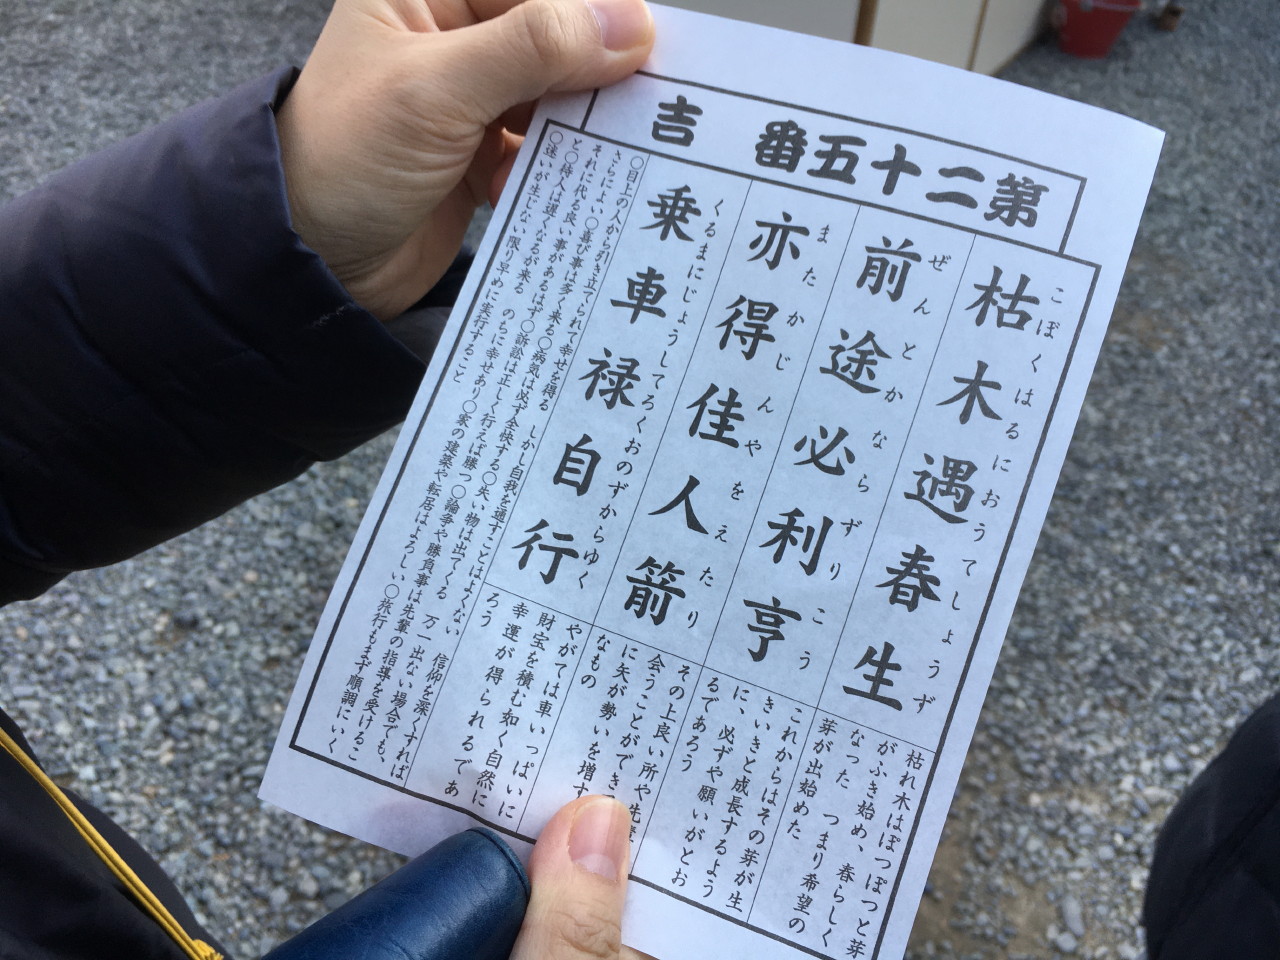 第二十五番 吉
枯木遇春生
こぼくはるにおうてしょうず
前途必利亨
ぜんとかならずりこう
亦得佳人箭
またかじんやをえたり
乗車禄自行
くるまにじょうしてろくおのずからゆく
枯れ木はぽつぽつと芽
がふき始め、春らしく
なった つまり希望の
芽が出始めた
これからはその芽が生
きいきと成長するよう
に、必ずや願いがとお
るであろう
その上良い所や先輩
会うことができ
に矢が勢いを増す
なもの
やがては車いっぱいに
財宝を積む如く自然に
幸運が得られるであ
ろう
○目上の人から引き立てられて幸せを得る しかし自我を通すことはよくない 信仰を深くすれば
さらによい○喜び事は多く来る○病気は必ず全快する○失い物は出てくる 万一出ない場合でも、
それに代る良い事があるはず○訴訟は正しく行えば勝つ○論争や勝負事は先輩の指導を受けるこ
と○待人は遅くなるが来る のちに幸せあり○家の建築や転居はよろしい○旅行もまず順調にいく
○迷いが生じない限り早めに実行すること